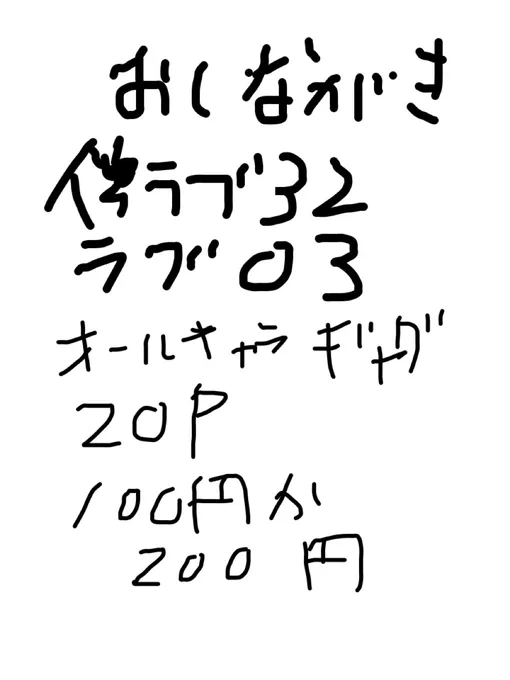 おしながき
ラブ32
ラブ03
オールキャラギャグ
20P
100円か
200円